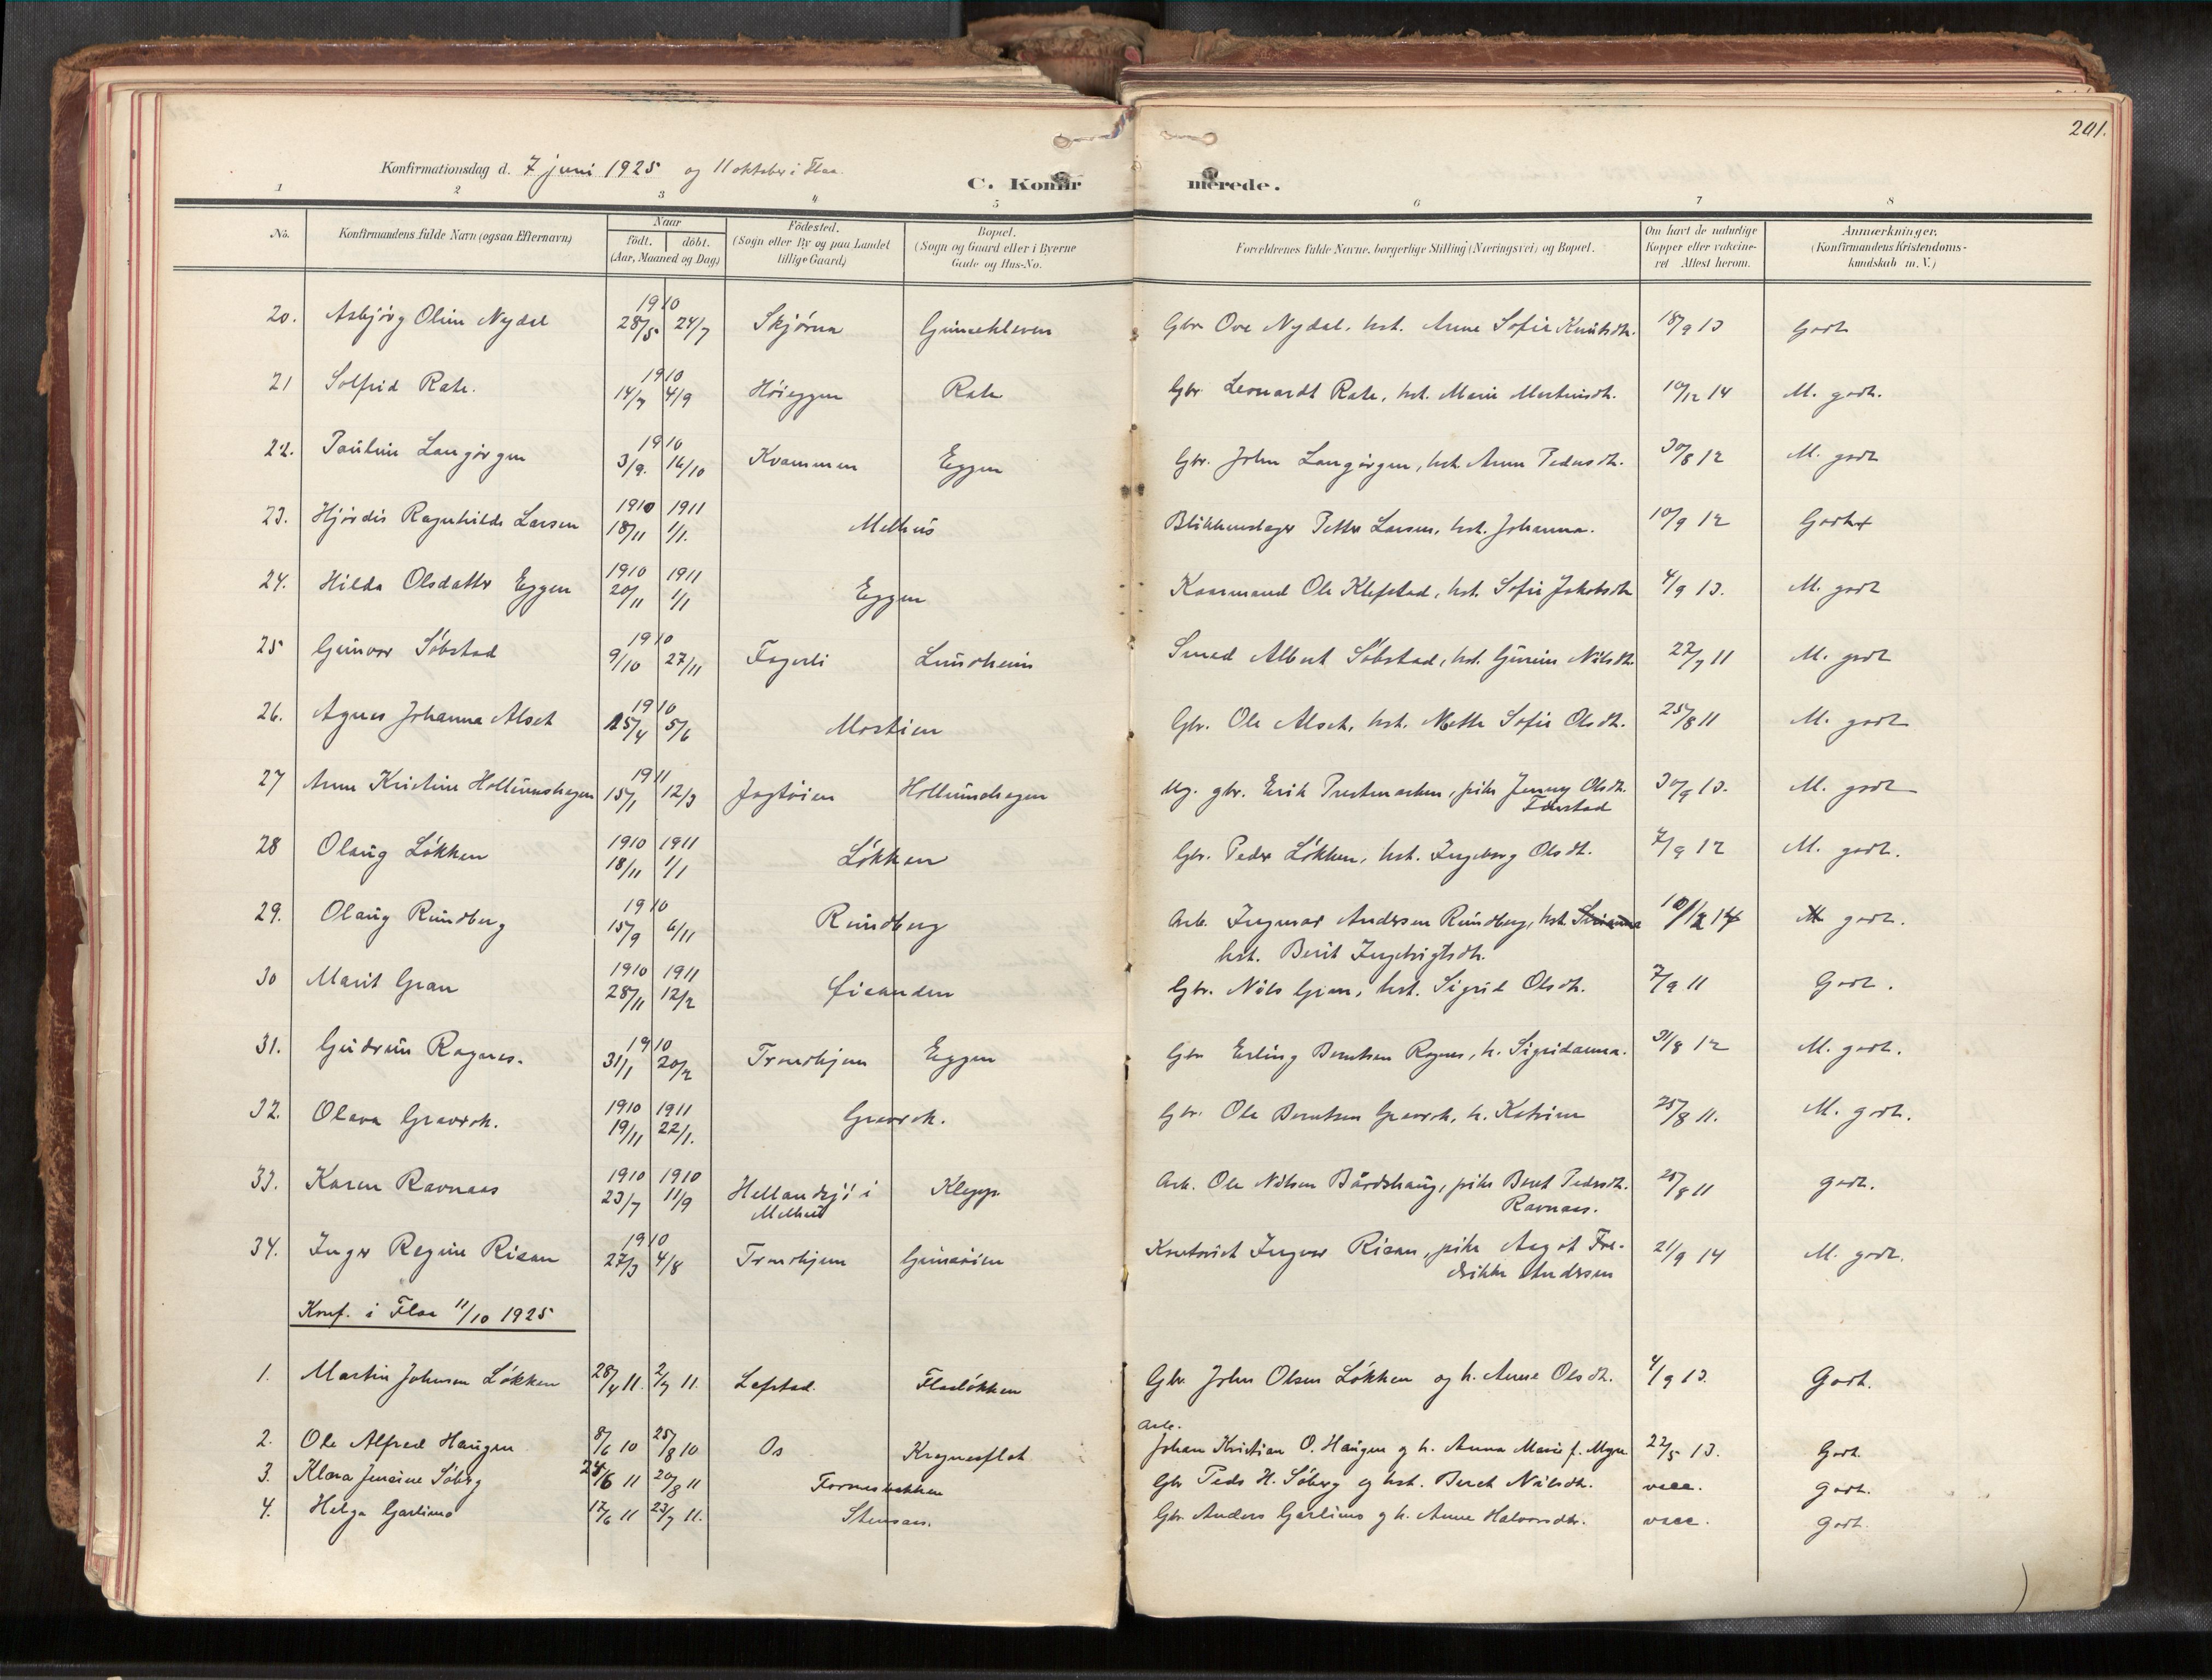 201.
Konfirmationsdag d. 7 juni 1925 og 11 oktober i Flaa.
C. Konfirmerede.
1 2 3 4 5 6 7 8
No. Konfirmandens fulde Navn (ogsaa Efternavn) Naar födt. döbt. (Aar, Maaned og Dag) Födested. (Sogn eller By og paa Landet tillige Gaard) Bopæl. (Sogn og Gaard eller i Byerne Gade og Hus-No. Forældrenes fulde Navne, borgerlige Stilling (Næringsvei) og Bopæl. Om havt de naturlige Kopper eller vakcineret Attest herom. Anmærkninger. (Konfirmandens Kristendomskundskab m. V.)
20. Asbjörg Oline Nydal 1910 28/5 24/7 Skjörna Gimsekleven Gbr. Ove Nydal, hst. Anne Sofie Knutsdtr. 18/9 13 Godt
21 Solfrid Rate. 1910 14/7 4/9 Höieggen Rate Gbr Leonardt Rate, hst. Marie Martinsdt. 10/12 14 M. godt.
22. Pauline Langörgen 1910 3/9. 16/10 Kvammen Eggen Gbr. John Langörgen, hst. Anne Pedersdt. 30/8 12 M. godt
23. Hjördis Ragnhilde Larsen 1910 18/11 1911 1/1. Melhus Blikkenslager Petter Larsen, hst. Johanna. 10/9 12 Godt
24. Hilda Olsdatter Eggen 1910 20/11 1911 1/1 Eggen Kaarmand Ole Klefstad, hst. Sofie Jakobsdt 4/9 13. M. godt
25 Gunvor Söbstad 1910 9/10 27/11 Fagerli Lundheim Smed Albert Söbstad, hst. Gurine Nilsdt. 27/7 11 M. godt
26. Agnes Johanna Alset 1910 25/4 5/6 Mostien Gbr. Ole Alset, hst. Mette Sofie Olsdt. 25/8 11 M. godt
27 Anne Kristine Hollumshagen 1911 15/1 12/3 Jagtöien Hollumshagen Ug. gbr. Erik Prestmarken, pike Jenny Olsdt. 30/9 13. M. godt
28 Olaug Lökken 1910 18/11 1911 1/1 Lökken Gbr. Peder Lökken, hst. Ingeborg Olsdt. 7/9 12 M. godt.
29. Olaug Rundberg 1910 15/9 6/11 Rundberg Arb. Ingmar Andersen Rundberg, hst. 10/12 14 godt.
hst. Berit Ingebrigtsdt.
30 Marit Gran 1910 28/11 1911 12/2 Öieanden Gbr. Nils Gran, hst. Sigrid Olsdt. 7/9 11 Godt.
31. Gudrun Rognes. 1910 31/1 20/2 Trondhjem Eggen Gbr Erling Berntsen Rognes, h. Sigridanna. 31/8 12 M. godt.
32. Olava Gravrok. 1910 19/11 1911 22/1. Gravrok. Gbr. Ole Berntsen Gravrok, h. Katrine 25/8 11. M. godt.
33. Karen Ravnaas 1910 23/7 1910 11/9 Hellandsjö i Melhus Klepp Arb. Ole Nilsen Bårdshaug, pike Beret Pedersdt. Ravnaas. 25/8 11 godt.
34. Inger Regine Risan 1910 27/3 4/8 Trondhjem Gimseöien Kontorist Ingvar Risan, pike Aagot Fredrikke Andersen 21/9 14 M. godt.
Konf. i Flaa 11/10 1925
1. Martin Johnsen Lökken 28/4 11. 2/7 11. Lefstad. Flaalökken Gbr. John Olsen Lökken og h. Anne Olsdt. 4/9 13. Godt.
2. Ole Alfred Haugen 8/6 10 25/8 10 Os Kregnesflat Arb. Johan Kristian O. Haugen og h. Anna Marie f. Myre 22/5 13. Godt.
3. Klara Jensine Söberg 24/6 11 20/8 11 Fornesbakken Gbr Peder H. Söberg og hst. Beret Nilsdt. vacc. godt.
4. Helga Garlimo 17/6 11 23/7 11. Stensaas. Gbr. Anders Garlimo og h. Anne Halvorsdtr. vacc. godt.